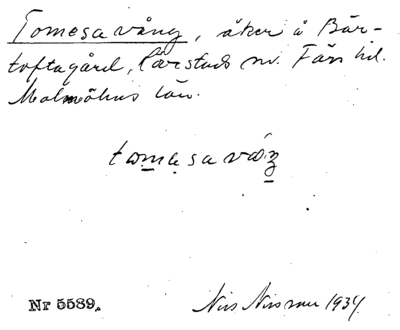 Tomesavång, åker å Bär-
toftagård, Kärstads sn. Färs hd.
Malmöhus län.
tomasavåŋ
Nr 5589.
Nils Nilsson 1934.